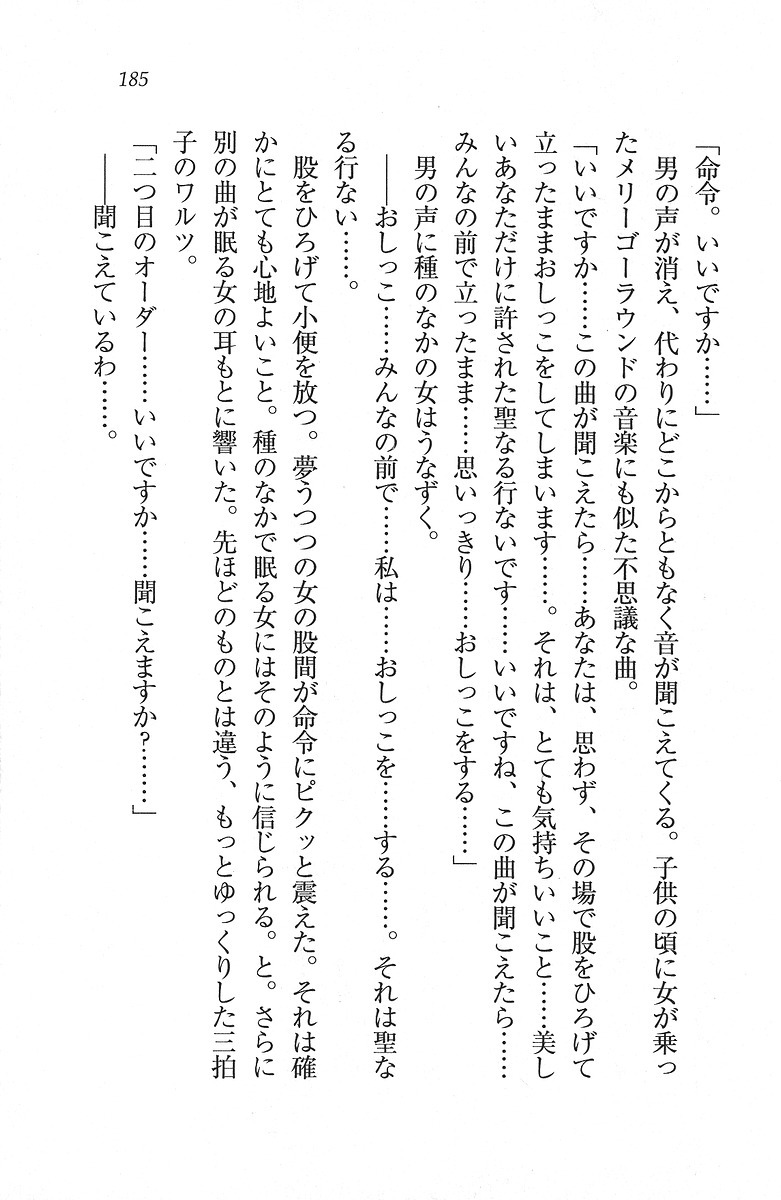 185
「命令。いいですか……」
男の声が消え、代わりにどこからともなく音が聞こえてくる。子供の頃に女が乗っ
たメリーゴーラウンドの音楽にも似た不思議な曲。
「いいですか……この曲が聞こえたら……あなたは、思わず、その場で股をひろげて
立ったままおしっこをしてしまいます……。それは、とても気持ちいいこと……美し
いあなただけに許された聖なる行ないです……いいですね、この曲が聞こえたら……
みんなの前で立ったまま……思いっきり……おしっこをする……」
男の声に種のなかの女はうなずく。
――おしっこ……みんなの前で……私は……おしっこを……する……。それは聖な
る行ない……。
股をひろげて小便を放つ。夢うつつの女の股間が命令にピクッと震えた。それは確
かにとても心地よいこと。種のなかで眠る女にはそのように信じられる。と。さらに
別の曲が眠る女の耳もとに響いた。先ほどのものとは違う、もっとゆっくりした三拍
子のワルツ。
「二つ目のオーダー……いいですか……聞こえますか?……」
――聞こえているわ……。